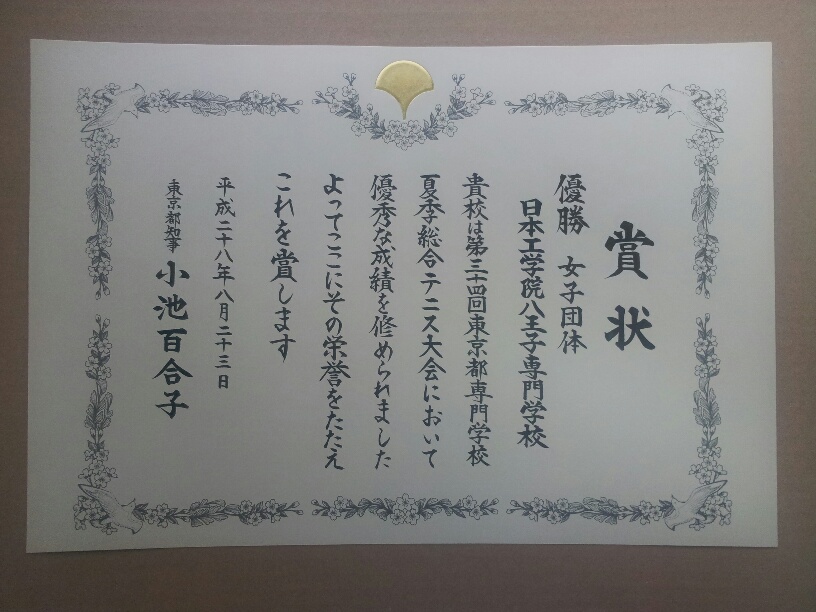 賞状
優勝 女子団体
日本工学院八王子専門学校
貴校は第三十四回東京都専門学校
夏季総合テニス大会において
優秀な成績を修められました
よってここにその栄誉をたたえ
これを賞します
平成二十八年八月二十三日
東京都知事 小池百合子